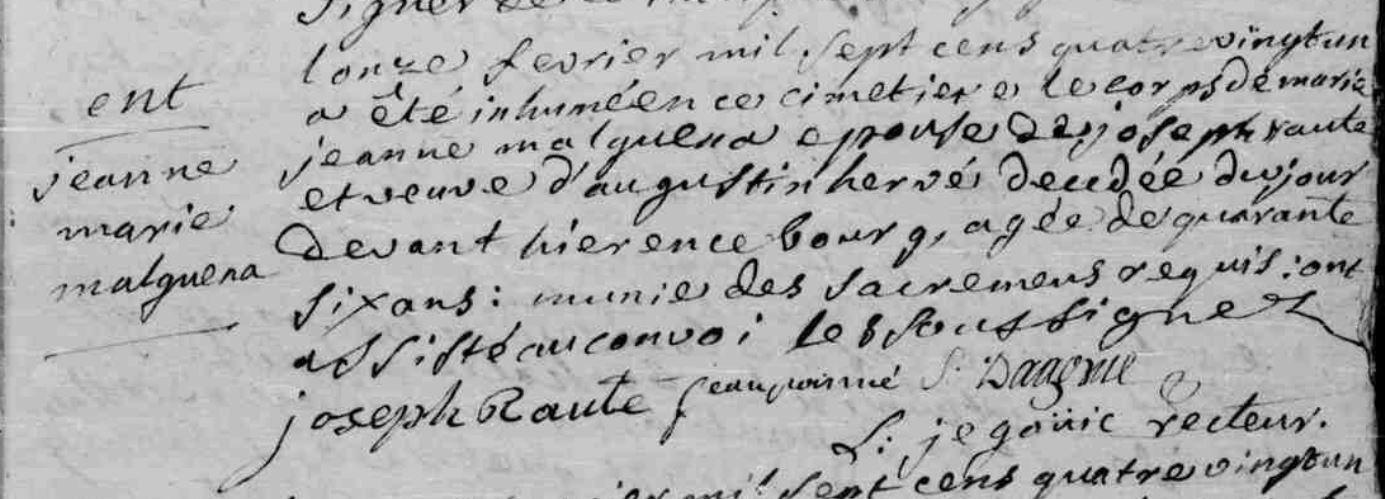 signer
ent
jeanne
marie
malguena
lonze fevrier mil sept cens quatrevingt un
a été inhumée en ce cimetiere le corps de marie
jeanne malguena epouse de joseph raute
et veuve d'augustin hervé decedée du jour
devant hier en ce bourg, agée de quarante
six ans : munie des sacremens requis : ont
assisté au convoi les soussignez
joseph Raute jean S:
L: jegouic recteur.
mil sept cens quatrevingt un